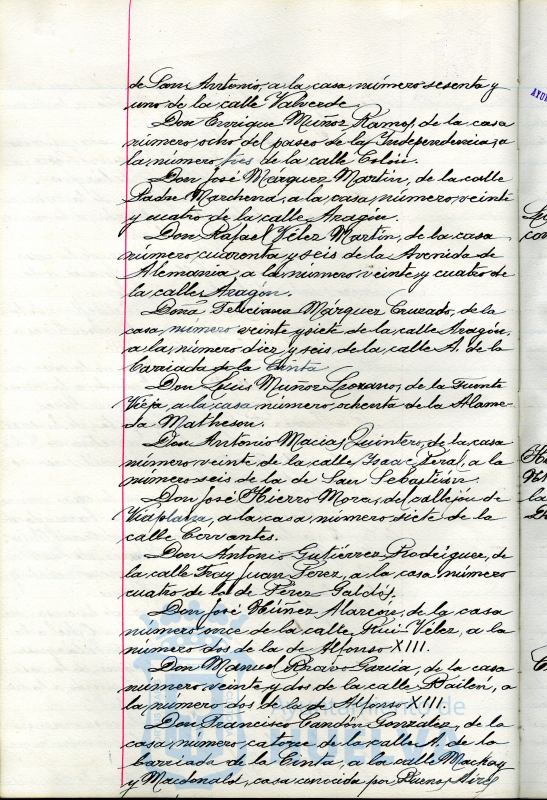 de San Antonio, a la casa número sesenta y
uno de la calle Valverde.
Don Enrique Muñoz Ramos, de la casa
número ocho del paseo de la Independencia, a
la número tres de la calle Colón.
Don José Márquez Martín, de la calle
Padre Marchena, a la casa número veinte
y cuatro de la calle Aragón.
Don Rafael Vélez Martín, de la casa
número cuarenta y seis de la Avenida de
Alemania, a la número veinte y cuatro de
la calle Aragón.
Doña Feliciana Márquez Cruzado, de la
casa número veinte y siete de la calle Aragón,
a la número diez y seis de la calle A. de la
barriada de la Cinta
Don Luis Muñoz Lozano, de la Fuente
Vieja, a la casa número ochenta de la Alame-
da Matheson.
Don Antonio Macias Quintero, de la casa
número veinte de la calle Isaac Peral, a la
número seis de la de San Sebastián.
Don José Hierro Mora, del callejón de
Viaplana, a la casa número siete de la
calle Cervantes.
Don Antonio Gutiérrez Rodríguez, de
la calle Fray Juan Pérez, a la casa número
cuatro de la de Pérez Galdós.
Don José Núñez Alarcón, de la casa
número once de la calle Rui Vélez, a la
número dos de la de Alfonso XIII.
Don Manuel Bravo García, de la casa
número veinte y dos de la calle Bailén, a
la número dos de la de Alfonso XIII.
Don Francisco Candón González, de la
casa número catorce de la calle A. de la
barriada de la Cinta, a la calle Mackay
y Macdonald, casa conocida por Buenos Aires
Ayuntamiento de
HUELVA